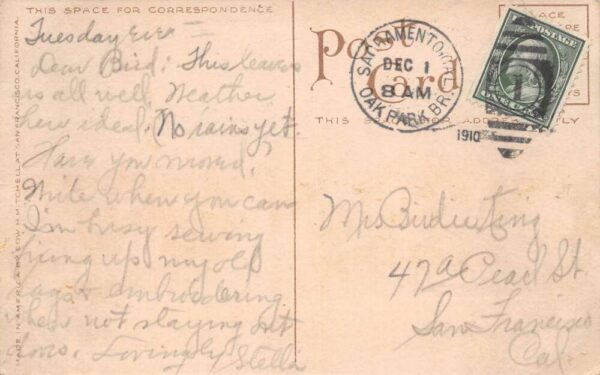 THIS SPACE FOR CORRESPONDENCE
Tuesday Eve
Dear Bird: This leaves
us all well. Weather
here ideal. No rains yet.
Have you moved.
Write when you can
I'm busy sewing
fixing up my old
rags & embroidering
when not staying out
doors. Lovingly Stella
MADE IN AMERICA BY EDW. H. MITCHELL AT SAN FRANCISCO, CALIFORNIA.
Post Card
THIS
SACRAMENTO
DEC 1
8 AM
OAK PARK BR.
1910
1
POSTAGE
Mrs Birdie
47a Pearl St.
San Francisco
Cal